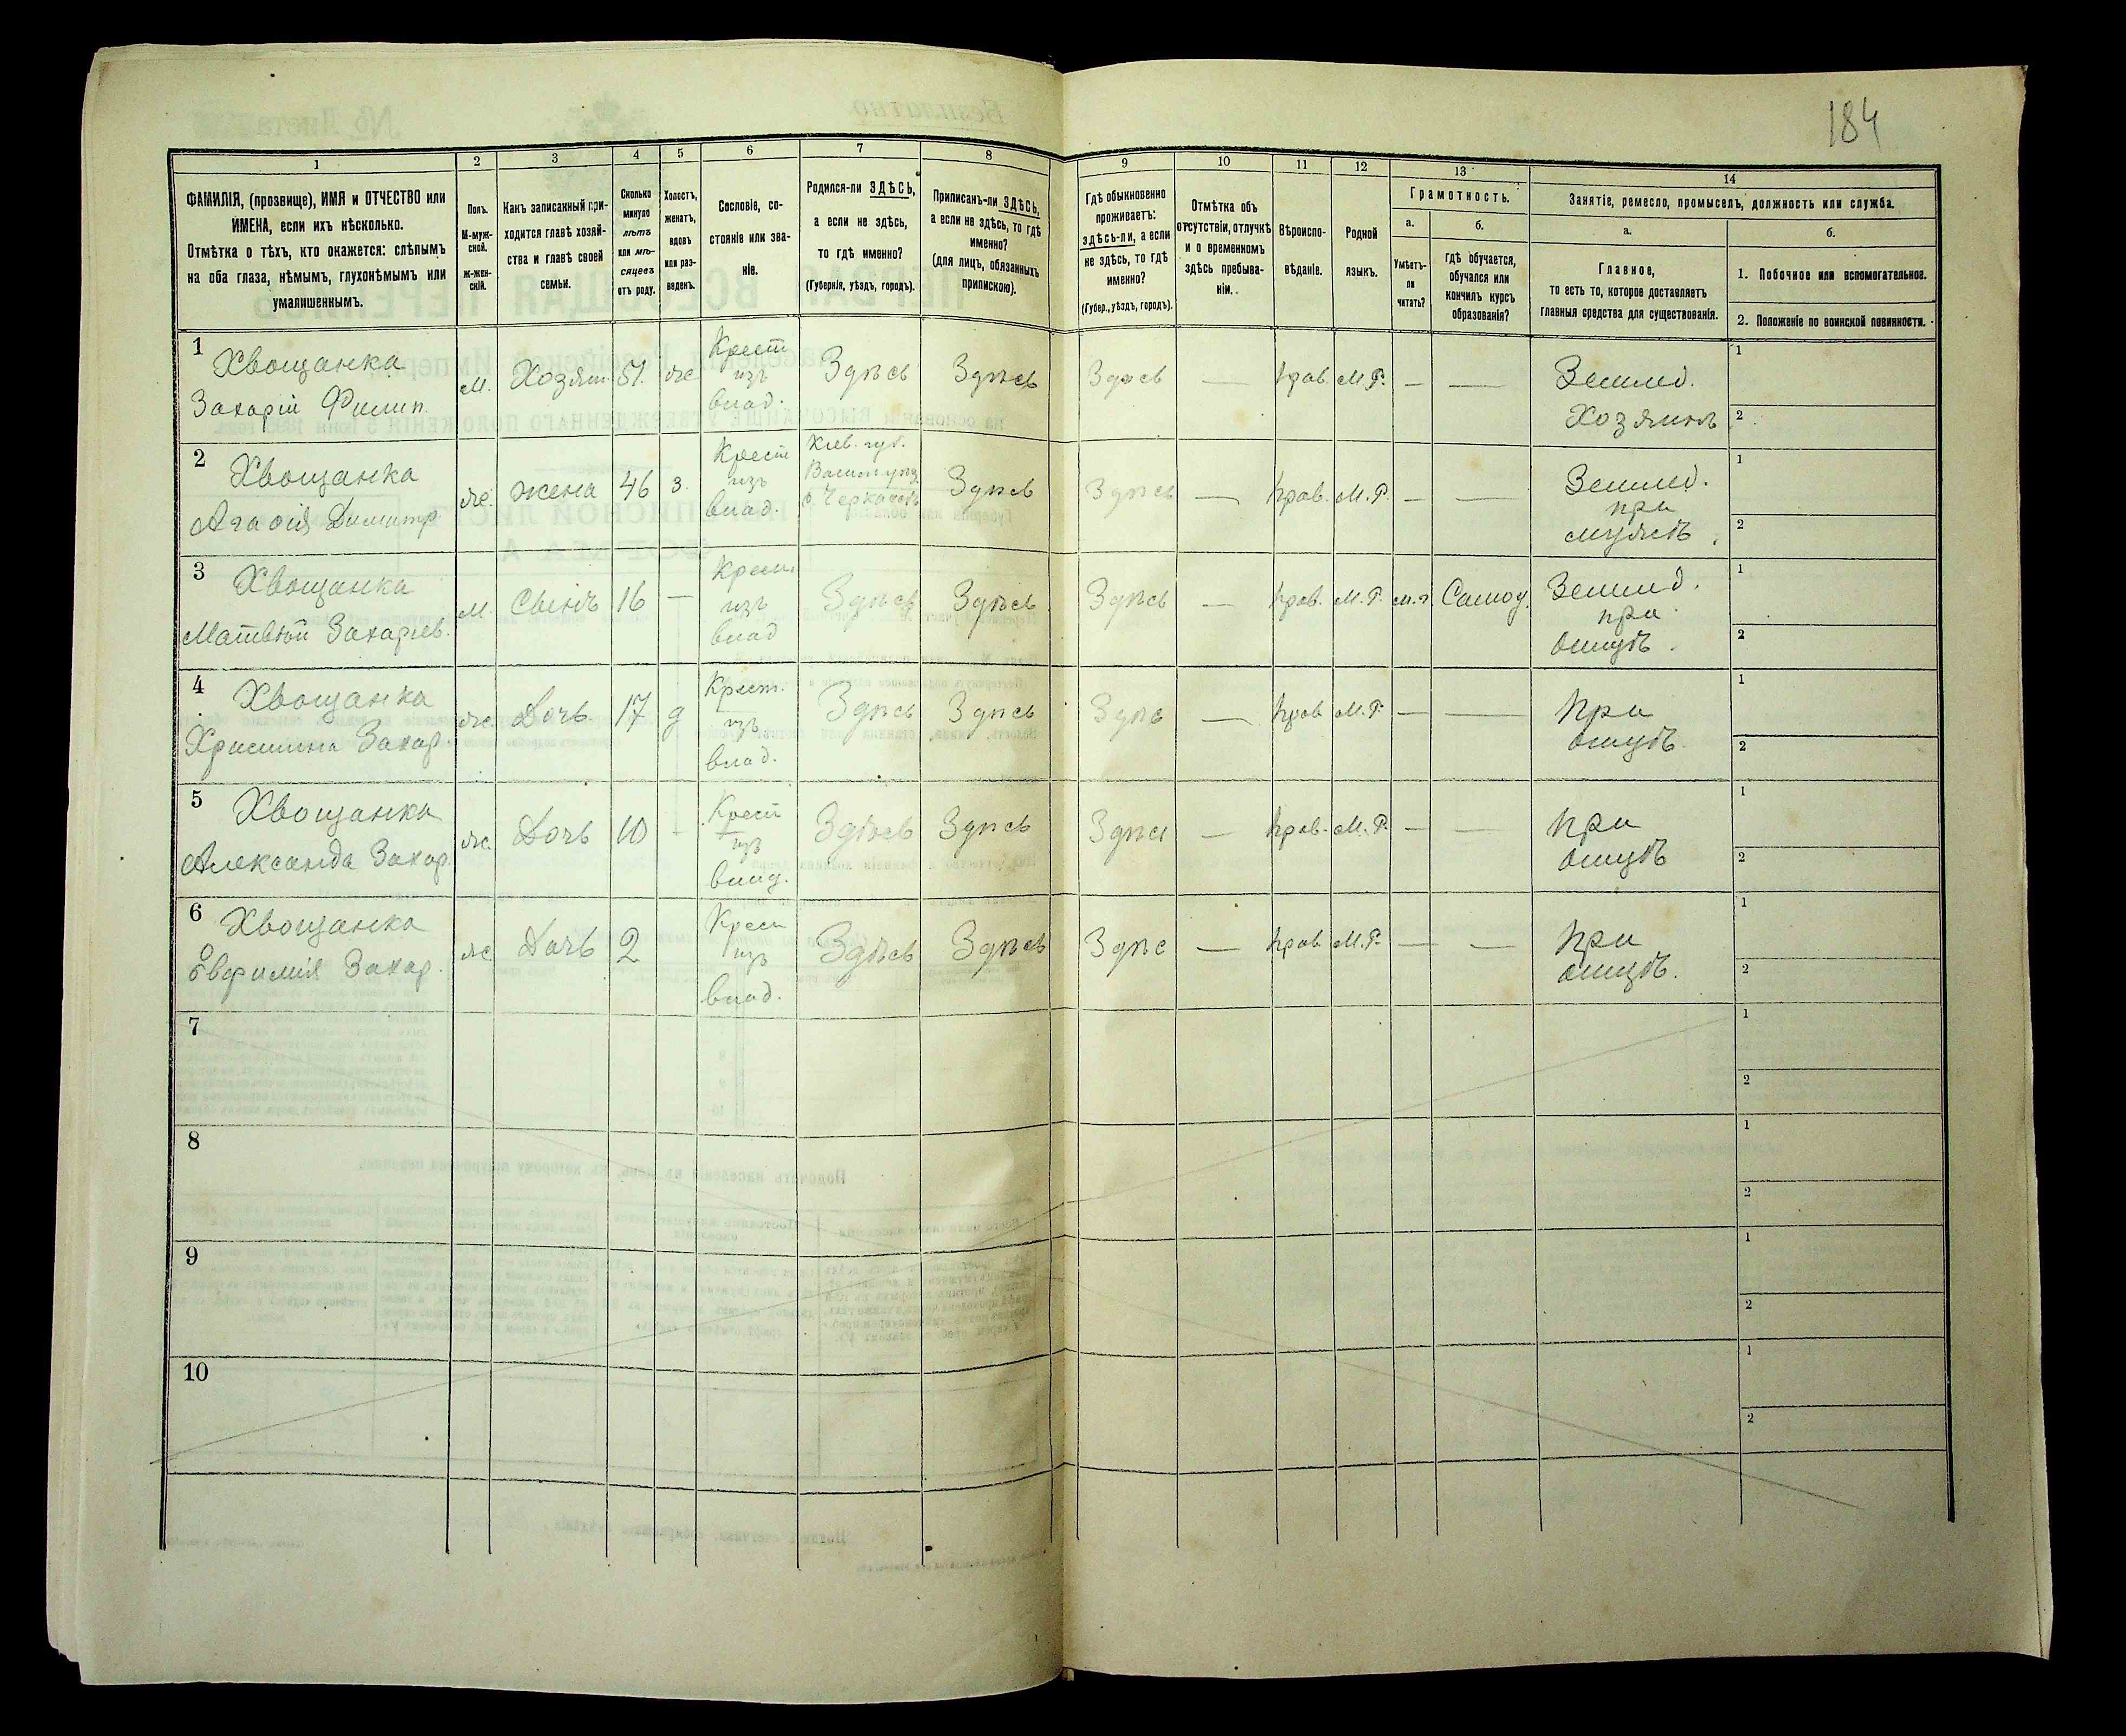 184
1
2
3
4
5
6
7
8
9
10
11
12
13
14
ФАМИЛІЯ, (прозвище), ИМЯ и ОТЧЕСТВО или
ИМЕНА, если ихъ нѣсколько.
Отмѣтка о тѣхъ, кто окажется: слѣпымъ
на оба глаза, нѣмымъ, глухонѣмымъ или
умалишеннымъ.
Полъ.
М-муж-
ской.
ж-жен-
скій.
Какъ записанный при-
ходится главѣ хозяй-
ства и главѣ своей
семьи.
Сколько
минуло
лѣтъ
или мѣ-
сяцевъ
отъ роду.
Холостъ,
женатъ,
вдовъ
или раз-
веденъ.
Сословіе, со-
стояніе или зва-
ніе.
Родился-ли ЗДѢСЬ,
а если не здѣсь,
то гдѣ именно?
(Губернія, уѣздъ, городъ).
Приписанъ-ли ЗДѢСЬ,
а если не здѣсь, то гдѣ
именно?
(для лицъ, обязанныхъ
припискою).
Гдѣ обыкновенно
проживаетъ:
здѣсь-ли, а если
не здѣсь, то гдѣ
именно?
(Губер., уѣздъ, городъ).
Отмѣтка объ
отсутствіи, отлучкѣ
и о временномъ
здѣсь пребыва-
ніи.
Вѣроиспо-
вѣданіе.
Родной
языкъ.
Грамотность.
а.
Умѣетъ-
ли
читать?
б.
гдѣ обучается,
обучался или
кончилъ курсъ
образованія?
Занятіе, ремесло, промыселъ, должность или служба.
а.
Главное,
то есть то, которое доставляетъ
главныя средства для существованія.
б.
1. Побочное или вспомогательное.
2. Положеніе по воинской повинности.
1 Хвощанка
Захарій Филип.
м. Хозяин 51 же
Крест
изъ
влад.
Здѣсь Здѣсь Здѣсь — Прав. М.Р. — —
Землед.
Хозяинъ
1
2
2 Хвощанка
Агафія Димитр
же. жена 46 з.
Крест
изъ
влад.
Кіев. губ.
Здѣсь Здѣсь — Прав. М.Р. — —
Землед.
при
мужѣ
1
2
3 Хвощанка
Матвѣй Захаріев.
м. Сынъ 16 —
Крест.
изъ
влад
Здѣсь Здѣсь Здѣсь — Прав. М.Р. Самоу.
Землед.
при
отцѣ.
1
2
4 Хвощанка
Христина Захар.
же. Дочь 17 д
Крест.
изъ
влад.
Здѣсь Здѣсь Здѣс — Прав М.Р. — —
При
отцѣ.
1
2
5 Хвощанка
Александа Захар.
же. Дочь 10 -
Крест
изъ
влад.
Здѣсь Здѣсь Здѣсь — Прав. М.Р. — —
При
отцѣ
1
2
6 Хвощанка
Евфимія Захар.
же Дочь 2
Крест
изъ
влад.
Здѣсь Здѣсь Здѣс — Прав М.Р. — —
При
отцѣ.
1
2
7
1
2
8
1
2
9
1
2
10
1
2